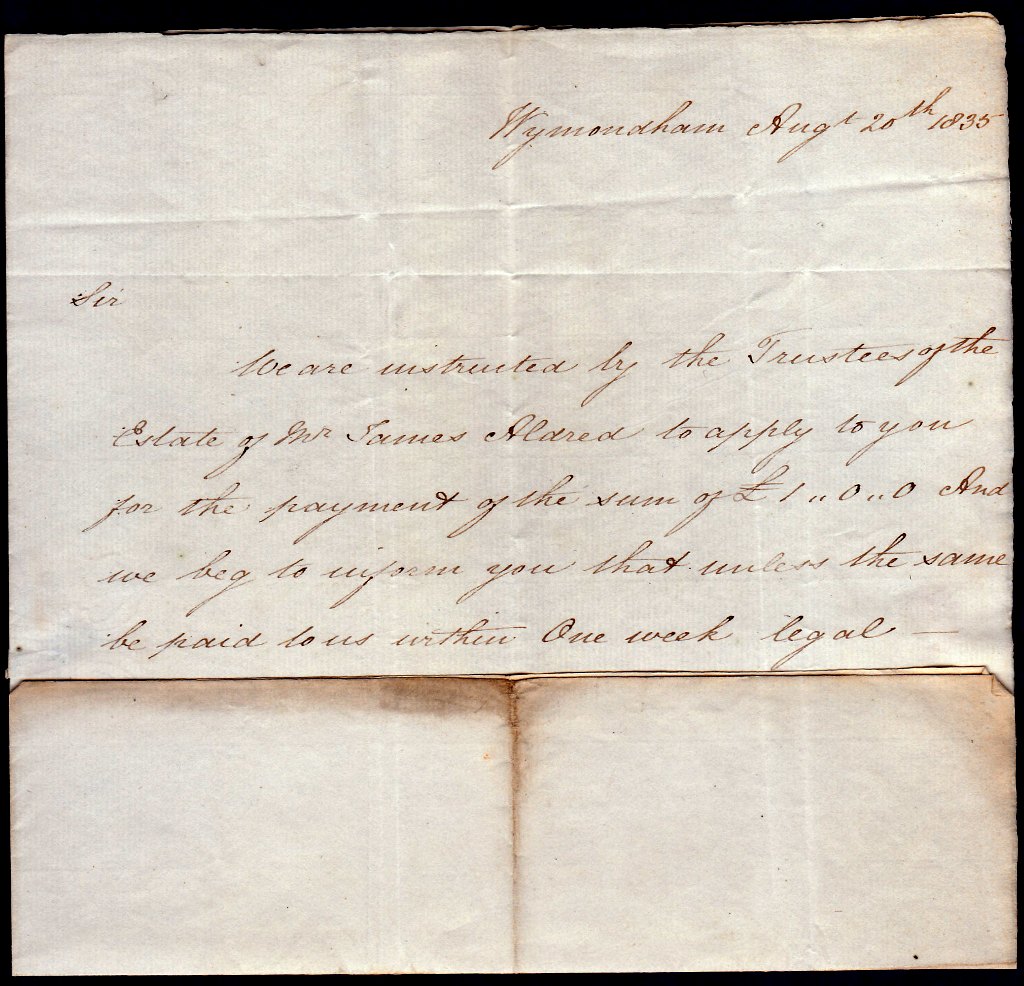 Wymondham Augt 20th 1835
Sir
We are instructed by the Trustees of the
Estate of Mr James Aldred to apply to you
for the payment of the sum of £1,,0,,0 And
we beg to inform you that unless the same
be paid to us within One week legal —